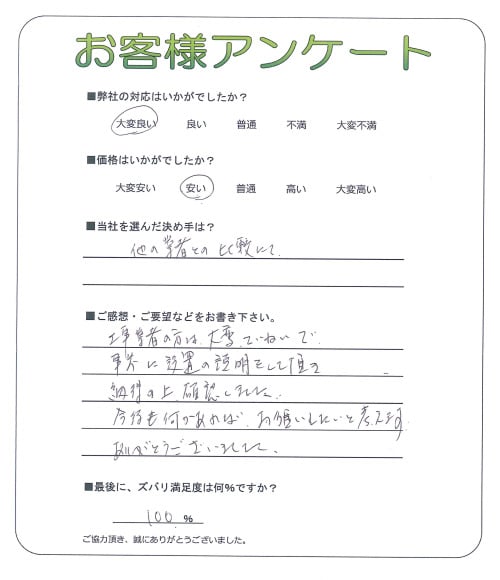 お客様アンケート
■弊社の対応はいかがでしたか？
大変良い 良い 普通 不満 大変不満
■価格はいかがでしたか？
大変安い 安い 普通 高い 大変高い
■当社を選んだ決め手は？
他の業者との比較にて
■ご感想・ご要望などをお書き下さい。
工事業者の方は、大変ていねいで、
事前に設置の説明をして頂き
納得の上、確認しました。
今後も何かあれば、お願いしたいと考えます。
ありがとうございました。
■最後に、ズバリ満足度は何％ですか？
100 ％
ご協力頂き、誠にありがとうございました。